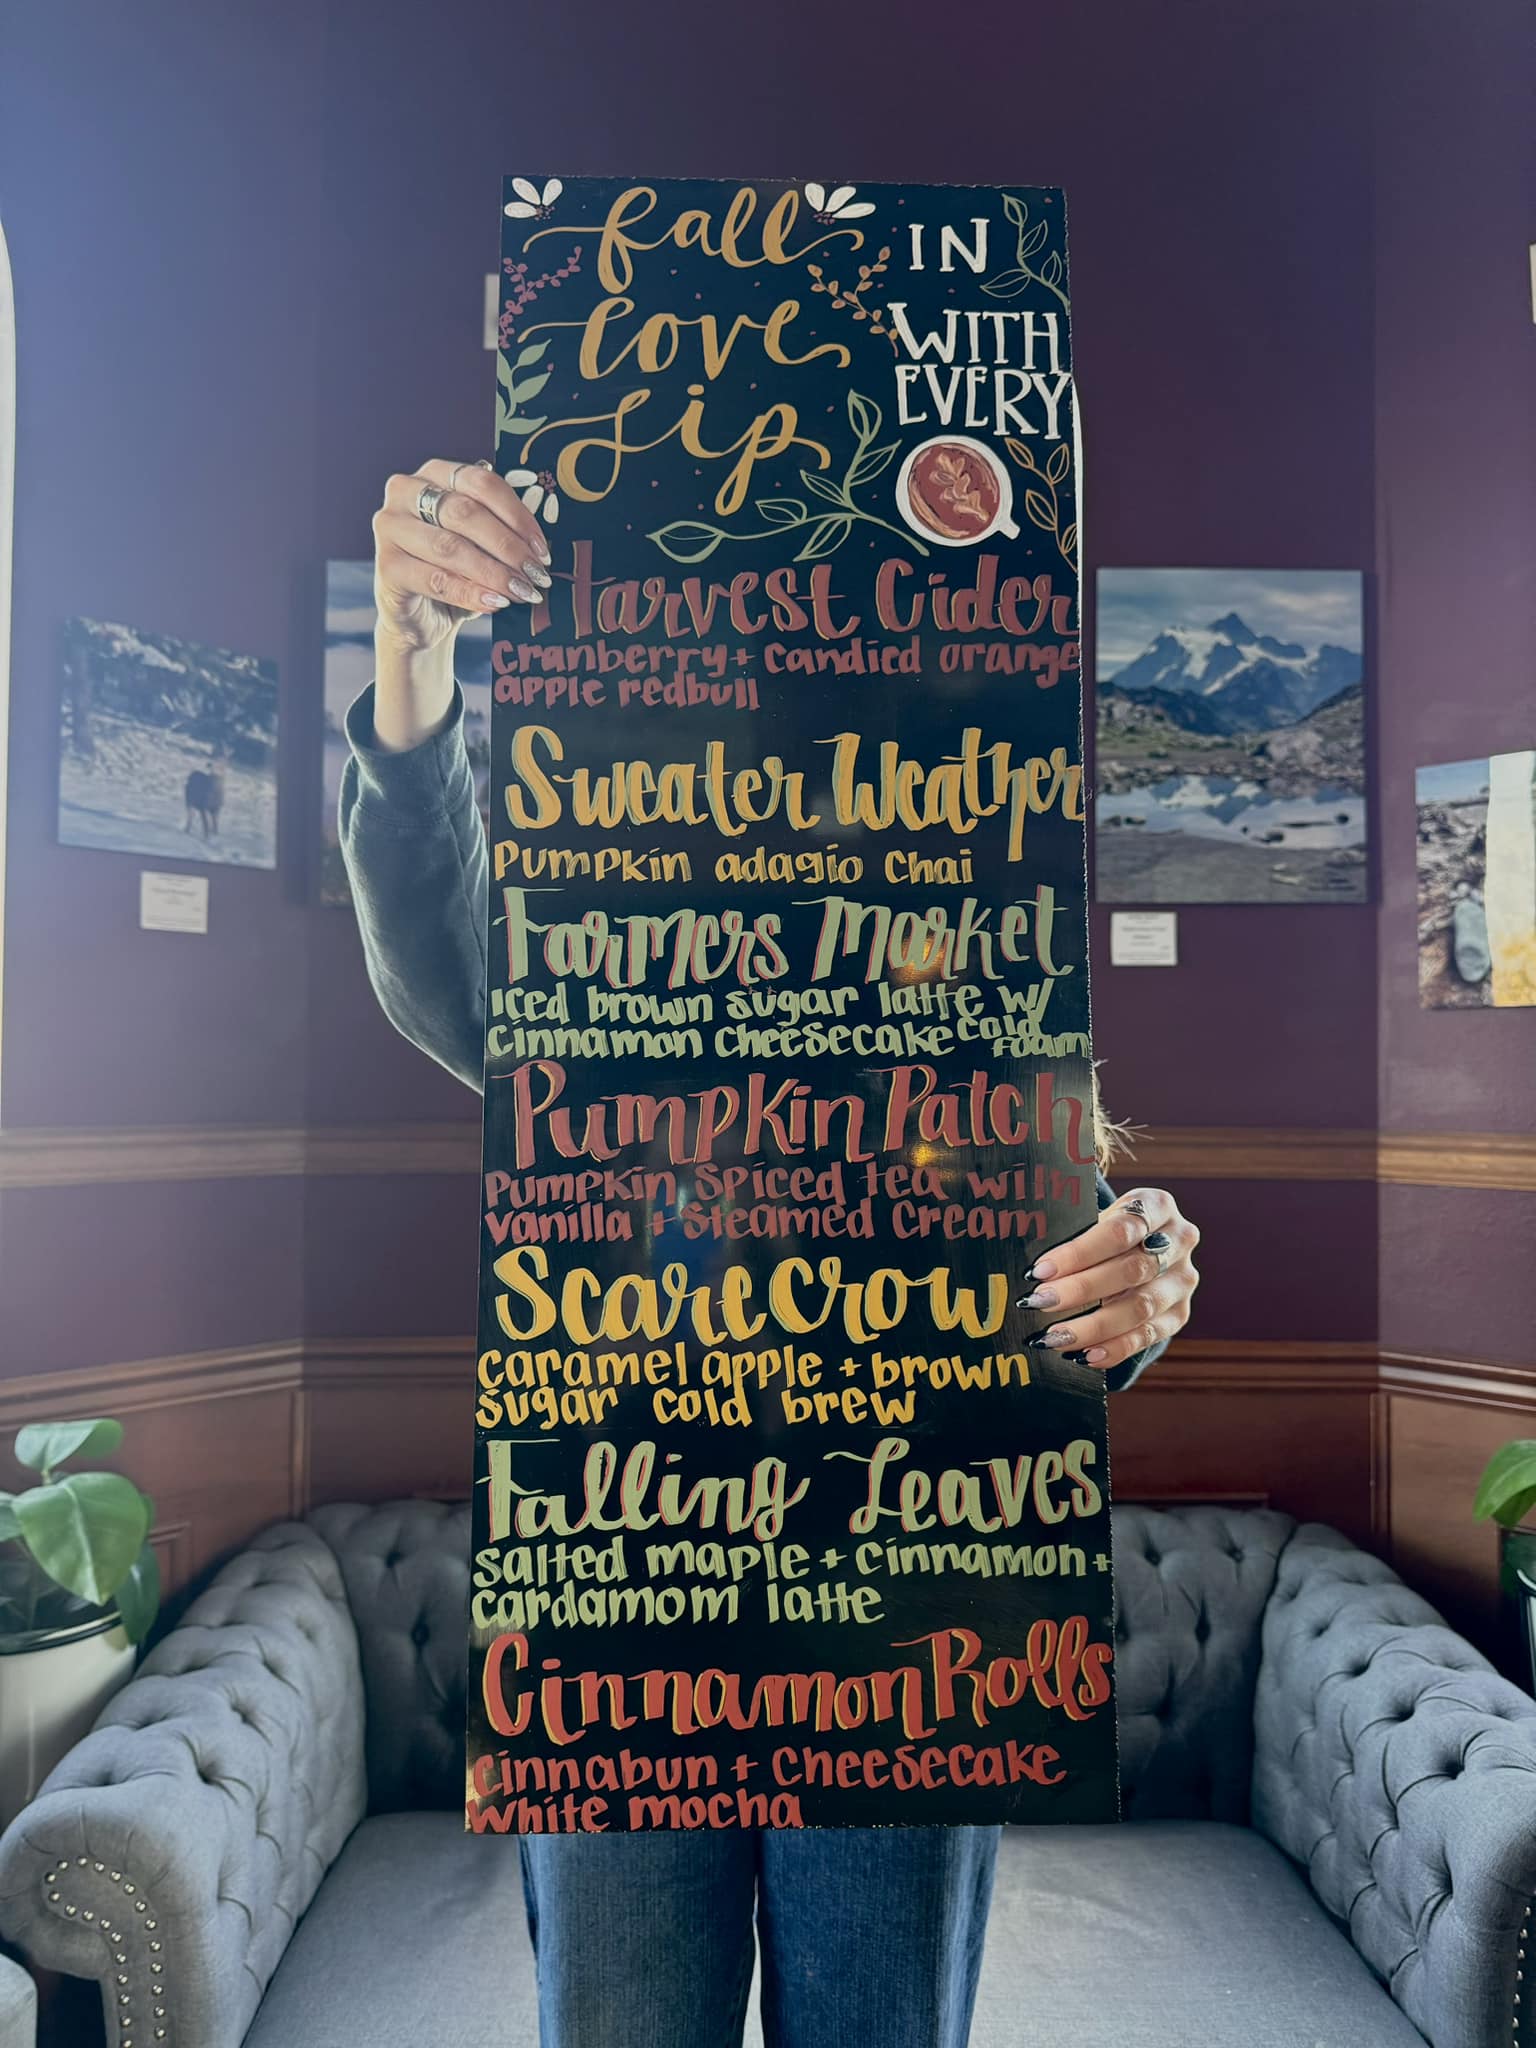 fall IN
love WITH
EVERY
sip
Harvest Cider
cranberry + candied orange
apple redbull
Sweater Weather
Pumpkin adagio chai
Farmers Market
iced brown sugar latte w/
cinnamon cheesecake cold foam
Pumpkin Patch
Pumpkin spiced tea with
vanilla + steamed cream
Scarecrow
caramel apple + brown
sugar cold brew
Falling Leaves
salted maple + cinnamon +
cardamom latte
Cinnamon Rolls
cinnabun + cheesecake
white mocha